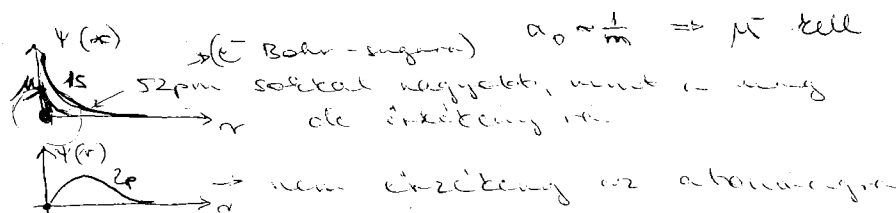 Ψ(x) →(e⁻ Bohr-sugara) a₀ ~ 1/m ⇒ μ⁻ kell
μ 1S 52pm sokkal nagyobb, mint a mag
r de érzékeny rá.
Ψ(r)
2p → nem érzékeny az atommagra
r